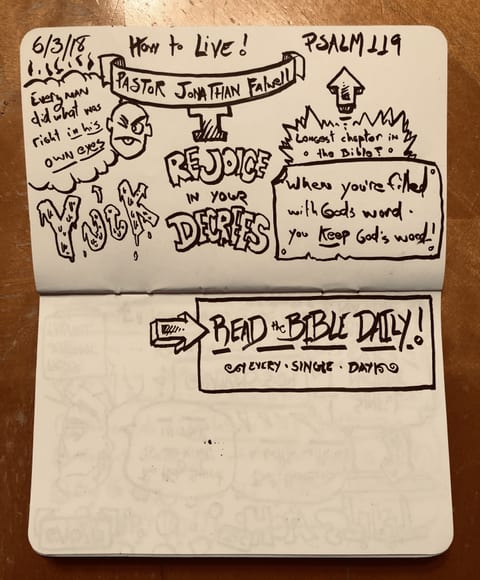 6/3/18 How to Live! PSALM 119
PASTOR JONATHAN Falwell
Every man
did what was
right in his
own eyes
YUCK
REJOICE
IN YOUR
DECREES
Longest chapter in
the Bible?
When you're filled
with God's word.
you Keep God's word!
READ the BIBLE DAILY!
EVERY · SINGLE · DAY